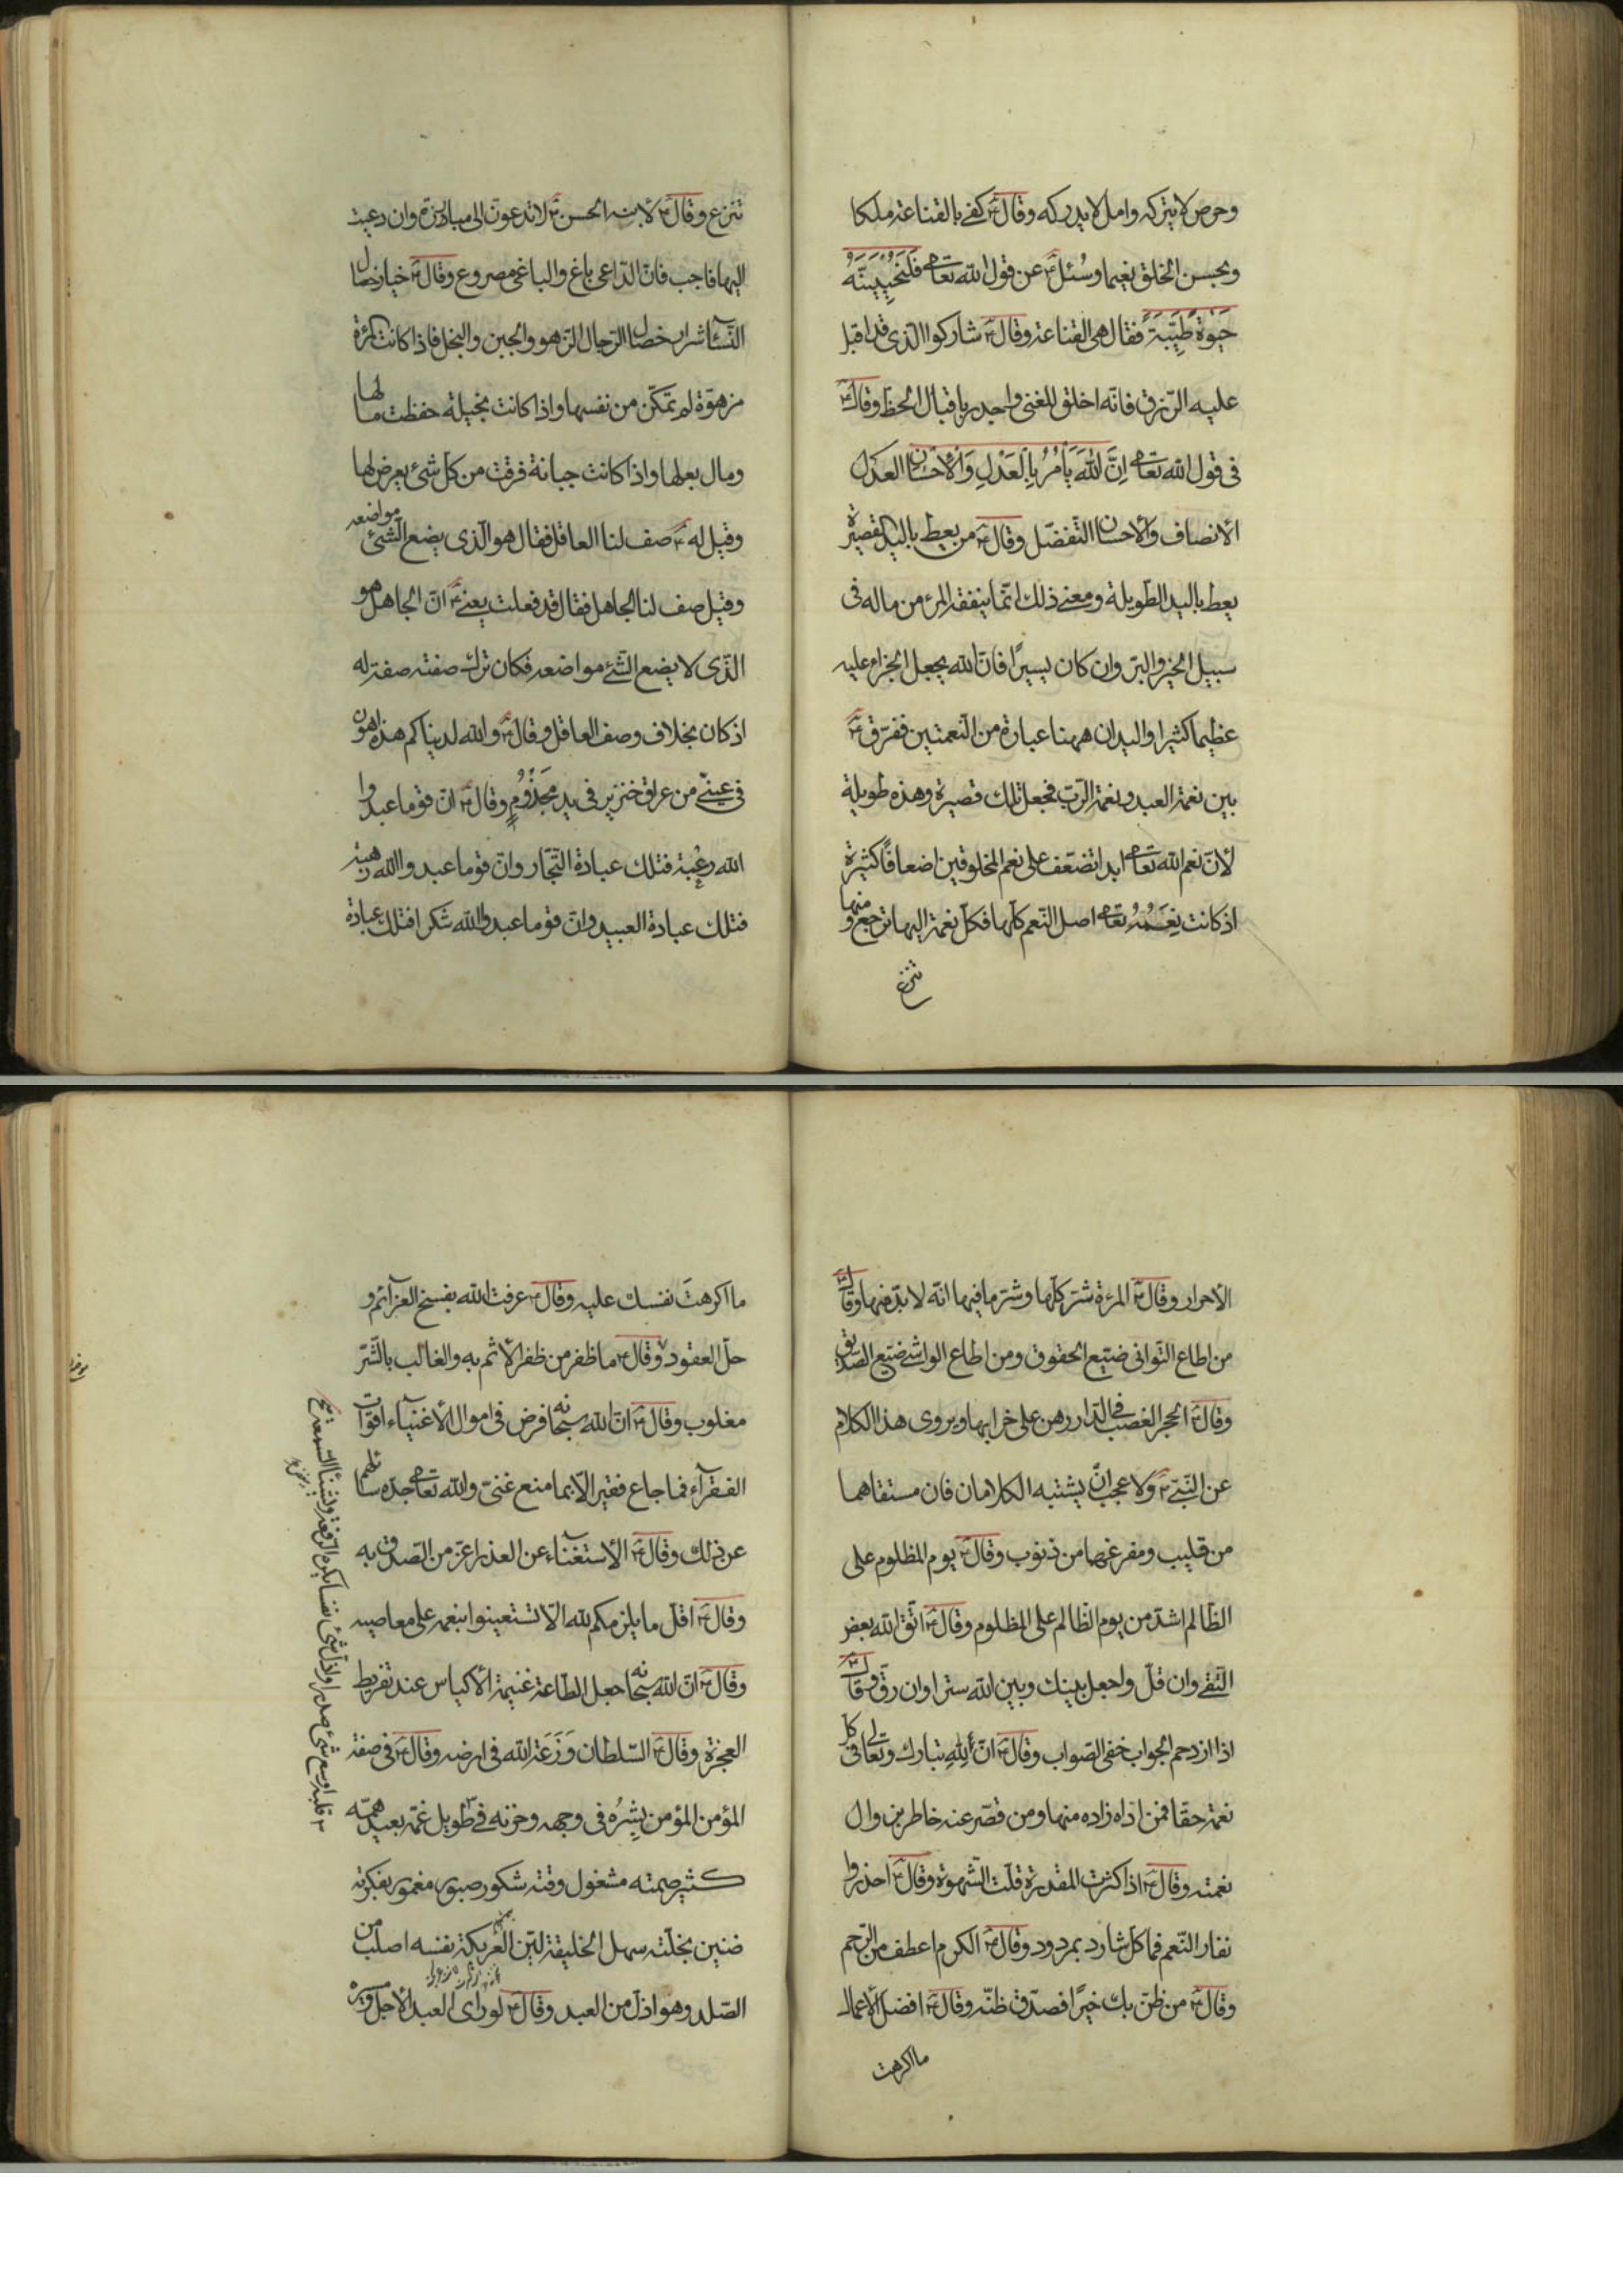 وحرص لا يتركه وامل لا يدركه وقال ع كفى بالقناعة ملكا
وبحسن الخلق نعيما وسُئل ع عن قول الله تعالى فَلَنُحْيِيَنَّهُ
حَيٰوةً طَيِّبَةً فقال هى القناعة وقال ع شاركوا الذى قد اقبل
عليه الرّزق فانّه اخلق للغنى واجدر باقبال الحظ وقال ع
فى قول الله تعالى اِنَّ اللهَ يَأْمُرُ بِالْعَدْلِ وَالْأِحْسَانِ العدل
الأنصاف والأحسان التّفضّل وقال ع من يعط باليد القصيرة
يعط باليد الطّويلة ومعنى ذلك انّما ينفقه المرء من ماله فى
سبيل الخير والبرّ وان كان يسيرًا فانّ الله يجعل الجزاء عليه
عظيما كثيرا واليدان ههنا عبارة من النّعمتين ففرّق ع
بين نعمة العبد ونعمة الرّب فجعل تلك قصيرة وهذه طويلة
لأنّ نعم الله تعالى ابدا تضعّف على نعم المخلوقين اضعافًا كثيرة
اذ كانت نِعَمُهُ تعالى اصل النّعم كلّها فكلّ نعمة اليها ترجع ومنها
تنزع
تنزع وقال ع لأبنه الحسن ع لا تدعونّ الى مبارزة وان دعيت
اليها فاجب فانّ الدّاعى باغ والباغى مصروع وقال ع خيار خصال
النّساء شرار خصال الرّجال الزّهو والجبن والبخل فاذا كانت المرءة
مزهوّة لم تمكّن من نفسها واذا كانت بخيلة حفظت مالها
ومال بعلها واذا كانت جبانة فرقت من كلّ شئ يعرض لها
وقيل له ع صف لنا العاقل فقال هو الّذى يضع الشّئ مواضعه
وقيل صف لنا الجاهل فقال قد فعلت يعنى ع انّ الجاهل هو
الّذى لا يضع الشّئ مواضعه فكان ترك صفته صفة له
اذ كان بخلاف وصف العاقل وقال ع والله لدنياكم هذه اهون
فى عينى من عراق خنزير فى يد مَجْذُومٍ وقال ع انّ قوما عبدوا
الله رغْبة فتلك عبادة التّجّار وانّ قوما عبدوا الله رهبة
فتلك عبادة العبيد وانّ قوما عبدوا الله شكرا فتلك عبادة
الأحرار وقال ع المرءة شرّ كلّها وشرّ ما فيها انّه لا بدّ منها وقال ع
من اطاع التّوانى ضيّع الحقوق ومن اطاع الواشى ضيّع الصّديق
وقال ع الحجر الغصب فى الدّار رهن على خرابها ويروى هذا الكلام
عن النّبىّ ع ولا عجب انّ يشتبه الكلامان فان مستقاهما
من قليب ومفرغهما من ذنوب وقال ع يوم المظلوم على
الظّالم اشدّ من يوم الظّالم على المظلوم وقال ع اتّق الله بعض
التّقى وان قلّ واجعل بينك وبين الله سترا وان رقّ وقال ع
اذا ازدحم الجواب خفى الصّواب وقال ع انّ لِلّهِ تبارك وتعالى فى كلّ
نعمة حقا فمن ادّاه زاده منها ومن قصّر عنه خاطر بزوال
نعمته وقال ع اذا كثرت المقدرة قلّت الشّهوة وقال ع احذروا
نفار النّعم فما كلّ شارد بمردود وقال ع الكرم اعطف من الرّحم
وقال ع من ظنّ بك خيرًا فصدّق ظنّه وقال ع افضل الأعمال
ما اكرهت
ما اكرهتَ نفسك عليه وقال ع عرفت الله بفسخ العزآئم و
حلّ العقود وقال ع ما ظفر من ظفر الأثم به والغالب بالشّرّ
مغلوب وقال ع انّ الله سبحانه فرض فى اموال الأغنيآء اقوات
الفقرآء فما جاع فقير الّا بما منع غنىّ والله تعالى جدّه سائلهم
عن ذلك وقال ع الأستغنآء عن العذر اعزّ من الصّدق به
وقال ع اقلّ ما يلزمكم لله الّا تستعينوا بنعمه على معاصيه
وقال ع انّ الله سبحانه جعل الطّاعة غنيمة الأكياس عند تفريط
العجزة وقال ع السّلطان وَزَعَة الله فى ارضه وقال ع فى صفة
المؤمن المؤمن بِشرُه فى وجهه وحزنه فى طويل غمّه بعيد همّه
كثير صمته مشغول وقته شكور صبور مغمور بفكرته
ضنين بخلّته سهل الخليقة ليّن العريكة نفسه اصلب من
الصّلد وهو اذلّ من العبد وقال ع لو راى العبد الأجل ومسيره
قلبه اوسع شئ صدرا واذلّ شئ نفسا يكره الرّفعة ويشنأ السّمعة